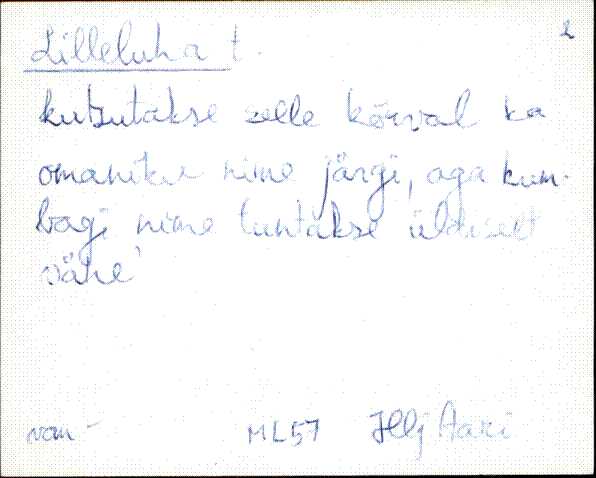 2
Lilleluha t.
kutsutakse selle kõrval ka
omaniku nime järgi, aga kum-
bagi nime tuntakse üldiselt
vähe
ML57 Illj Aari